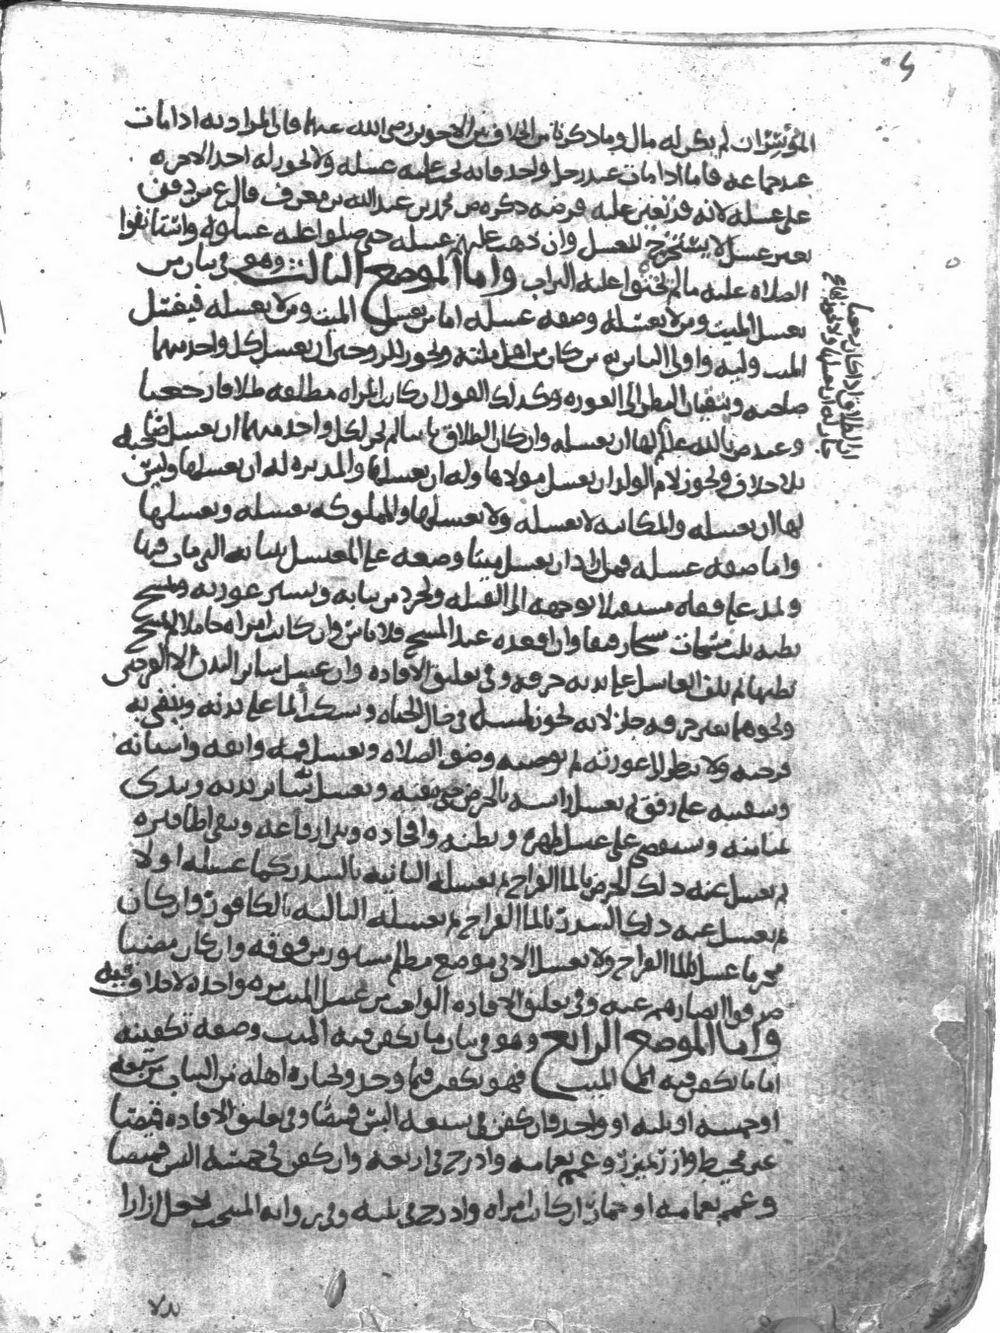 ان لم يكن له مال وما ذكرناه من الخلاف بين الاخوين رضى الله عنهما فان المراد به اذا مات
عند جماعه فاما اذا مات عند رجل واحد فانه يجب عليه غسله ولا يجوز له اخذ الاجره
على غسله لانه قد تعين عليه فرضه ذكره ص محمد بن عبد الله بن معرف قال ع من دفن
بغير غسل لا يستخرج للغسل وان ذهب عليهم غسله حتى صلوا عليه غسلوه واستانفوا
الصلاه عليه ما لم يحثوا عليه التراب واما الموضع الثالث وهو في بيان من
يغسل الميت ومن لا يغسله وصفه غسله اما من يغسل الميت ومن لا يغسله فيغسل
الميت وليه واولى الناس به من كان من اهل ملته ويجوز للزوجين ان يغسل كل واحد منهما
صاحبه ويتقيان النظر الى العوره وكذلك القول ان كان المراه مطلقه طلاقا رجعيا
وعند ص بالله علم لها ان يغسله وان كان الطلاق باينا لم يجز لكل واحد منهما ان يغسل صاحبه
بلا خلاف ويجوز لام الولد ان يغسل مولاها وله ان يغسلها والمدبره له ان يغسلها وليس
لها ان يغسله والمكاتبه لا يغسله ولا يغسلها والمملوكه يغسله ويغسلها
واما صفه غسله فمن اراد ان يغسل ميتا وضعه على المغسل بثيابه التي مات فيها
ويمد على قفاه مستقبلا بوجهه الى القبله ويجرد من ثيابه ويستر عورته ويمسح
بطنه ثلث مسحات مسحا رفيقا وان اقعده عند المسح فلا باس وان كانت امراه حاملا لم يمسح
بطنها ثم يلف الغاسل على يديه خرقه وفي تعليق الافاده وان غسل ساير البدن الا الفرجين
ونحوهما بغير خرقه جاز لانه يجوز لمسه في حال الحياه ويسكب الما على يديه وينقي به
فرجيه ولا ينظر الى عورته ثم يوضيه وضو الصلاه ويغسل فمه وانفه واسنانه
وشفتيه على رفق ثم يغسل راسه بالحرض حتى ينقيه ويغسل ساير بدنه ويبدى
بميامنه ويستقصي على غسل ظهره وبطنه وافخاذه وبين ارفاغه وينقي اظافيره
ثم يغسل عنه ذلك الحرض بالما القراح ثم يغسله الثانيه بالسدر كما غسله اولا
ثم يغسل عنه ذلك السدر بالما القراح ثم يغسله الثالثه بالكافور وان كان
محرما غسل بالما القراح ولا يغسل الا في موضع مظلم مستور من فوقه وان كان مضيا
صرفوا ابصارهم عنه وفي تعليق الافاده الواجب من غسل الميت مره واحده لا خلاف فيه
واما الموضع الرابع وهو في بيان ما يكفن فيه الميت وصفه تكفينه
اما ما يكفن فيه الميت فهو يكفن فيما وجد ويختاره اهله من الثياب من سبعه
او خمسه او ثلثه او واحد فان كفن في سبعه البس قميصا وفي تعليق الافاده قميصا
غير مخيط وازر بميزر وعمم بعمامه وادرج في اربعه وان كفن في خمسه البس قميصا
وعمم بعمامه او خمار ان كانت امراه وادرج في ثلثه وفي روايه المنتخب يجعل ازارا
بدلا